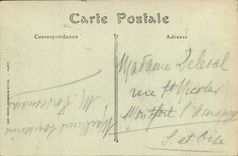 Carte Postale
Correspondance
Adresse
Madame Deleval
rue St Nicolas
Montfort l'Amaury
S. et Oise
Meilleurs souvenirs
M.